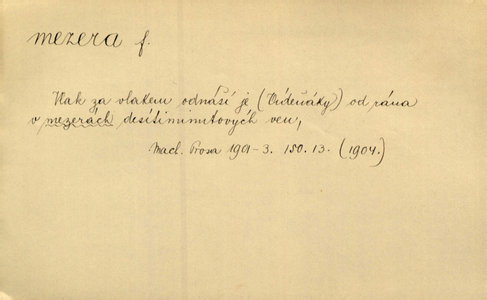 mezera f.
Vlak za vlakem odnáší je (Vídeňáky) od rána
v mezerách desítiminutových ven,
Mach. Prosa 1901-3. 150. 13. (1904.)